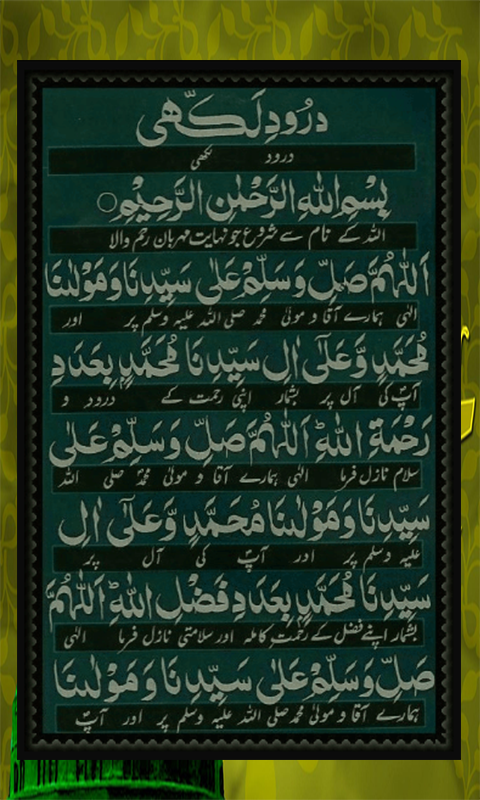 دُرُودِ لَكِّهى
درود لکھی
بِسْمِ اللهِ الرَّحْمٰنِ الرَّحِيْمِ ○
اللہ کے نام سے شروع جو نہایت مہربان رحم والا
اَللّٰهُمَّ صَلِّ وَسَلِّمْ عَلٰى سَيِّدِنَا وَمَوْلٰىنَا
الٰہی ہمارے آقا و مولیٰ محمد صلی اللہ علیہ وسلم پر اور
مُحَمَّدٍ وَّعَلٰٓى اٰلِ سَيِّدِنَا مُحَمَّدٍ بِعَدَدِ
آپؐ کی آل پر بشمار اپنی رحمت کے درود و
رَحْمَةِ اللهِ ؕ اَللّٰهُمَّ صَلِّ وَسَلِّمْ عَلٰى
سلام نازل فرما الٰہی ہمارے آقا و مولیٰ محمدؐ صلی اللہ
سَيِّدِنَا وَمَوْلٰىنَا مُحَمَّدٍ وَّعَلٰٓى اٰلِ
علیہ وسلم پر اور آپؐ کی آل پر
سَيِّدِنَا مُحَمَّدٍ بِعَدَدِ فَضْلِ اللهِ ؕ اَللّٰهُمَّ
بشمار اپنے فضل کے رحمت کاملہ اور سلامتی نازل فرما الٰہی
صَلِّ وَسَلِّمْ عَلٰى سَيِّدِنَا وَمَوْلٰىنَا
ہمارے آقا و مولیٰ محمد صلی اللہ علیہ وسلم پر اور آپؐ